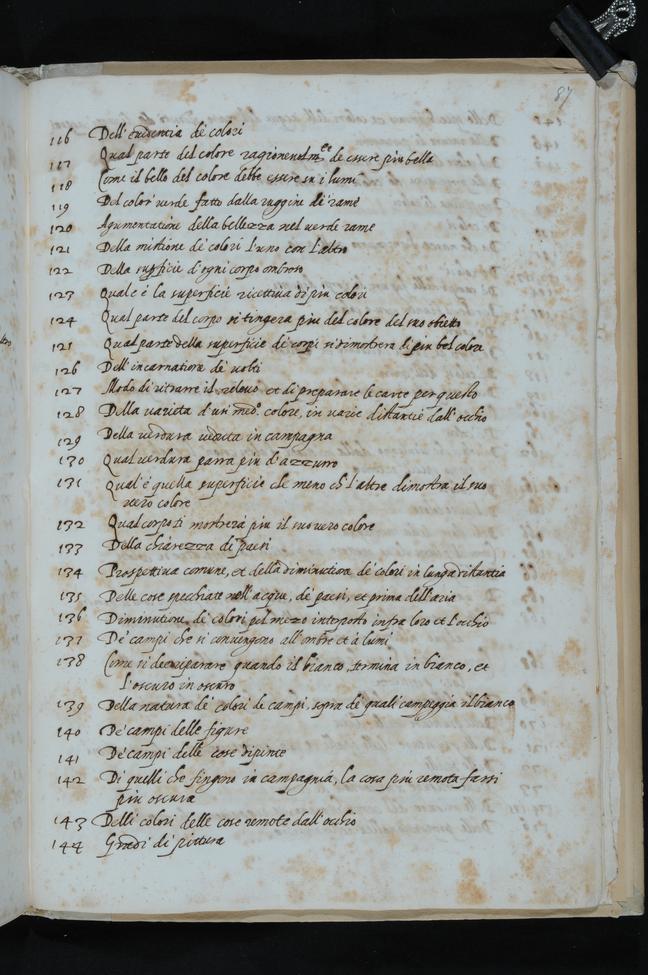 87
116 Dell'euidentia de colori
117 Qual parte del colore ragioneuolm.te de essere piu bella
118 Come il bello del colore debbe essere in i lumi
119 Del color uerde fatto dalla ruggine di rame
120 Agumentatione della bellezza nel uerde rame
121 Della mistione de colori l'uno con l'altro
122 Della supficie d'ogni corpo ombroso
123 Qual e è la superficie ricettiua di piu colori
124 Qual parte del corpo si tingera piu del colore del suo obietto
121 Qual parte della superficie de corpi si dimostrera di piu bel colore
126 Dell'incarnatione de uolti
127 Modo di ritrarre il rileuo et di preparare le carte per questo
128 Della uarieta d'un med.o colore, in uarie distantie dall'occhio
129 Della uerdura ueduta in campagna
130 Qual uerdura parra piu d'azzurro
131 Qual'è quella superficie che meno ch l'altre dimostra il suo
uero colore
132 Qual corpo ti mostrerà piu il suo uero colore
133 Della chiarezza de paesi
134 Prospettiua comune, et della diminutione de colori in lunga distantia
135 Delle cose specchiate nell'acqua, de paesi, et prima dell'aria
136 Diminutione de colori pel mezo interposto infra loro et l'occhio
137 De campi che si conuengono all'ombre et à lumi
138 Come si dee riparare quando il bianco, termina in bianco, et
l'oscuro in oscuro
139 Della natura de colori de campi, sopra de quali campeggia il bianco
140 De campi delle figure
141 De campi delle cose dipinte
142 Di quelli che fingono in campagna, la cosa piu remota farsi
piu oscura
143 Delli colori delle cose remote dall'occhio
144 Gradi di pittura